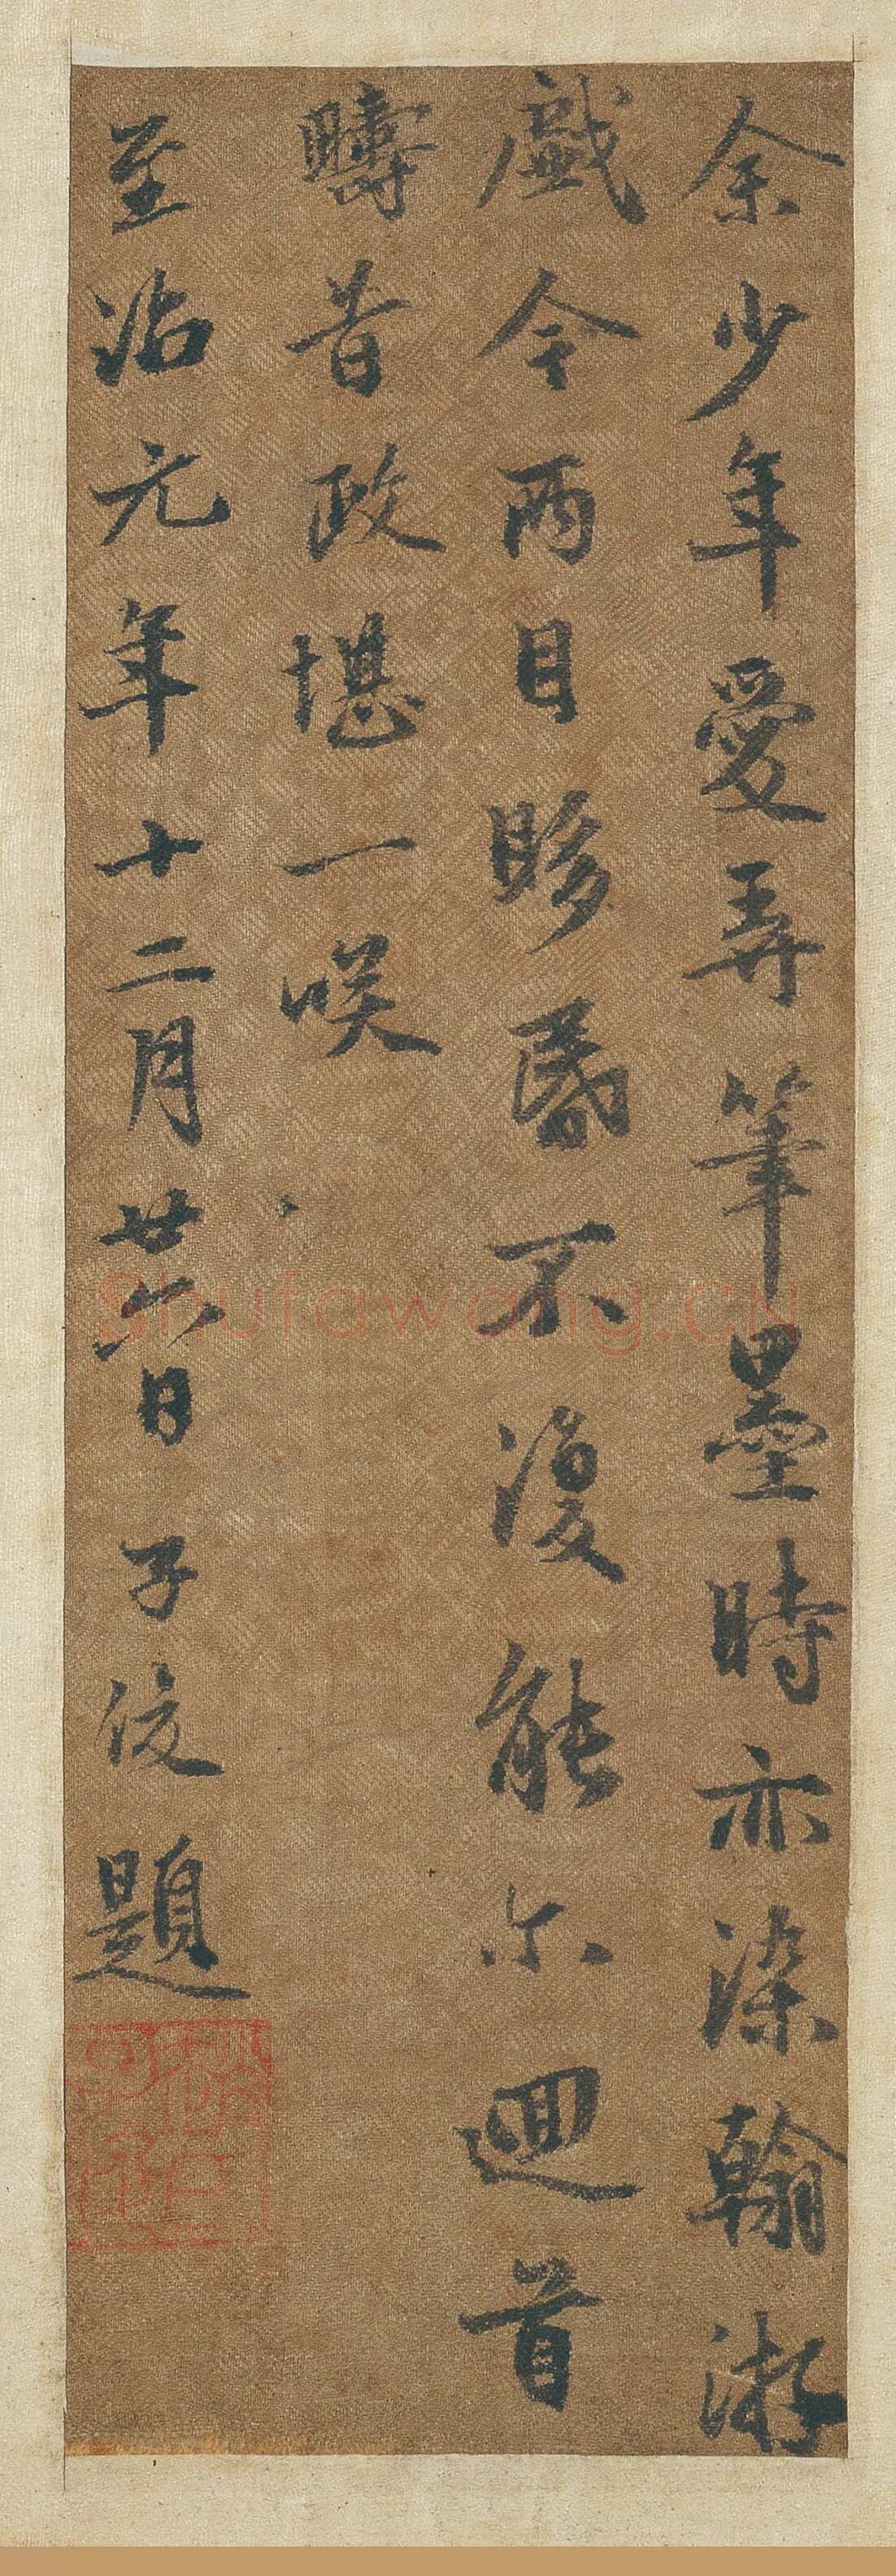 余少年愛弄筆墨時亦染翰游
戲今兩目眵昬不復能尒迴首
疇昔政堪一咲
至治元年十二月廿六日子俊題
Shufawang.CN